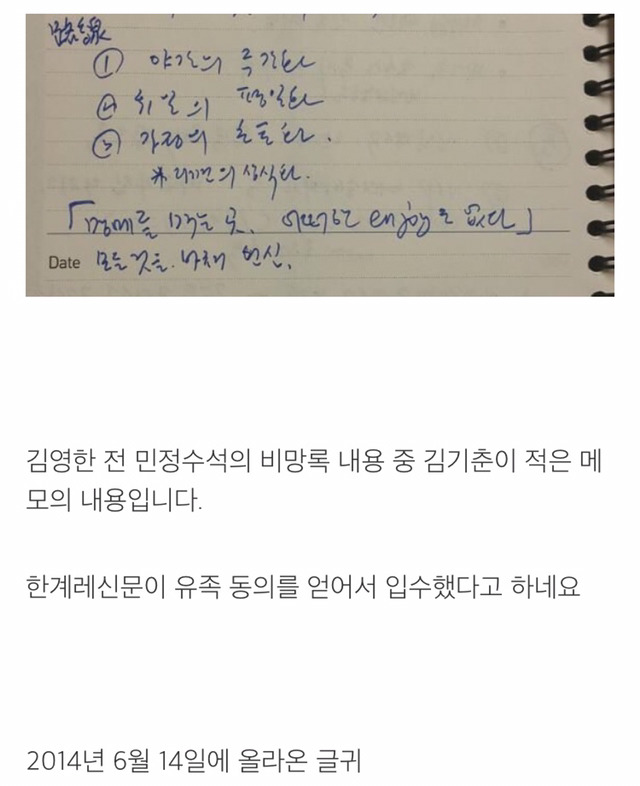 路線
① 야간의 주간화
② 휴일의 평일화
③ 가정의 초토화.
* 라면의 상식화.
「명예를 먹는 곳. 어떠한 enjoy도 없다」
Date 모든 것을 바쳐 헌신.
김영한 전 민정수석의 비망록 내용 중 김기춘이 적은 메
모의 내용입니다.
한계레신문이 유족 동의를 얻어서 입수했다고 하네요
2014년 6월 14일에 올라온 글귀